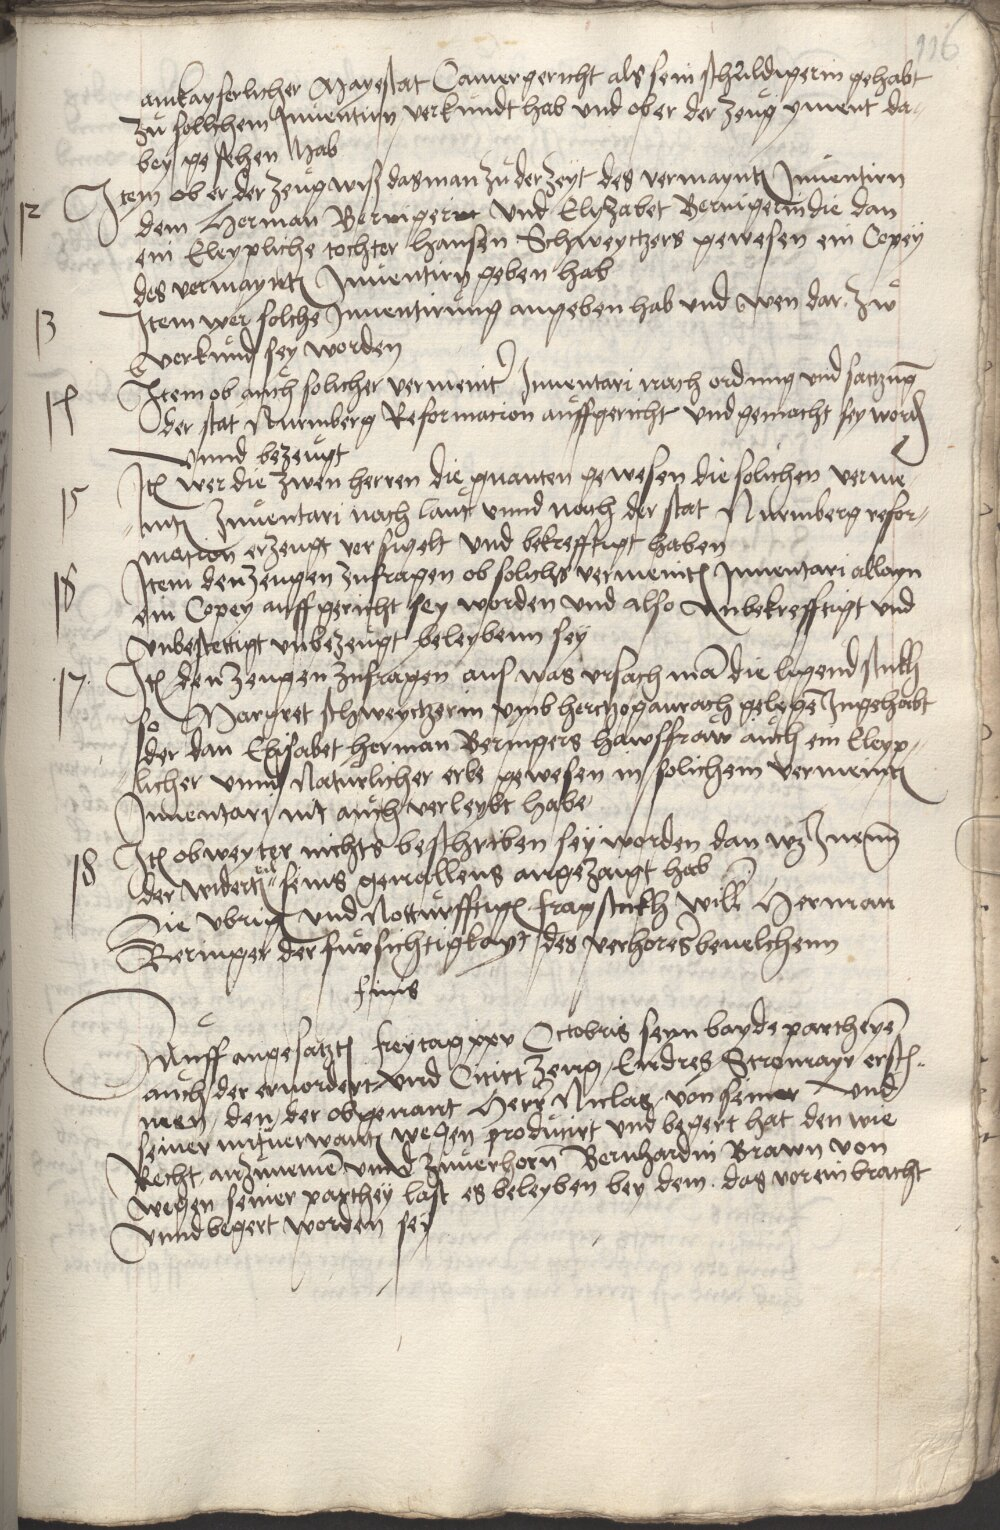 116
amkayserlicher Mayestat Camergericht als sein schuldigerin gehabt
zu sollichem Inuentirn verkundt hab und ob er der zeug yment da-
bey gesehen hab
12 Item ob er der zeug wiß das man zu der zeyt des vermaynten Inuentirn
dem Herman Beringer und Elizabet Beringerin die dan
ein Eleypliche tochter Hansen Schweytzers gewesen ein Copey
des vermaynten Inuentirn geben hab
13 Item wer solche Inuentirung angeben hab und wen dar zw
verkund sey worden
14 Item ob auch solicher vermeint Inuentari nach ordnung und satzung
der stat Nurmberg Reformacion auffgericht und gemacht sey word
unnd bezeugt
15 Itē wer die zwen herren die genanten gewesen die solichen verme-
inten Inuentari nach laut unnd nach der stat Nurmberg refor-
macion erzeugt versigelt und bekrefftigt haben
16 Item den zeugen zufragen ob solichs vermeintē Inuentari allayn
ein Copey auffgericht sey worden und also unbekrefftigt und
unbestettigt unbezeugt beleybenn sey
17 Itē den zeugen zufragen aus was ursach mā die ligend stukh
so Margret schweytzerin umb hertzogaurach gelegē Ingehabt
der dan Elisabet Herman Beringers hawsfraw auch ein Eleyp-
licher unnd Naturlicher erbe gewesen in solichem vermeinten
Inuentari nit auch verleybt habe
18 Itē ob weyter nichts beschriben sey worden dan wz
der widerteil seins geuallens angezaigt hab
Die ubrigē und Notturfftigē fragstukh will Herman
Beringer der fursichtigkayt des verhorers beuelchenn
finis
Auff angesatztē freytag xxv Octobris seyn bayde partheyē
auch der ervordert und Citirt zeug Endres Stromayr ersch-
inen, den der obgenant Herr Niclas von seiner und
seiner mituerwantē wegen producirt und begert hat den wie
Recht anzunemē und zuuerhorn Bernhardin Brawn von
wegen seiner parthey last es beleyben bey dem das vor einbracht
unnd begert worden sey